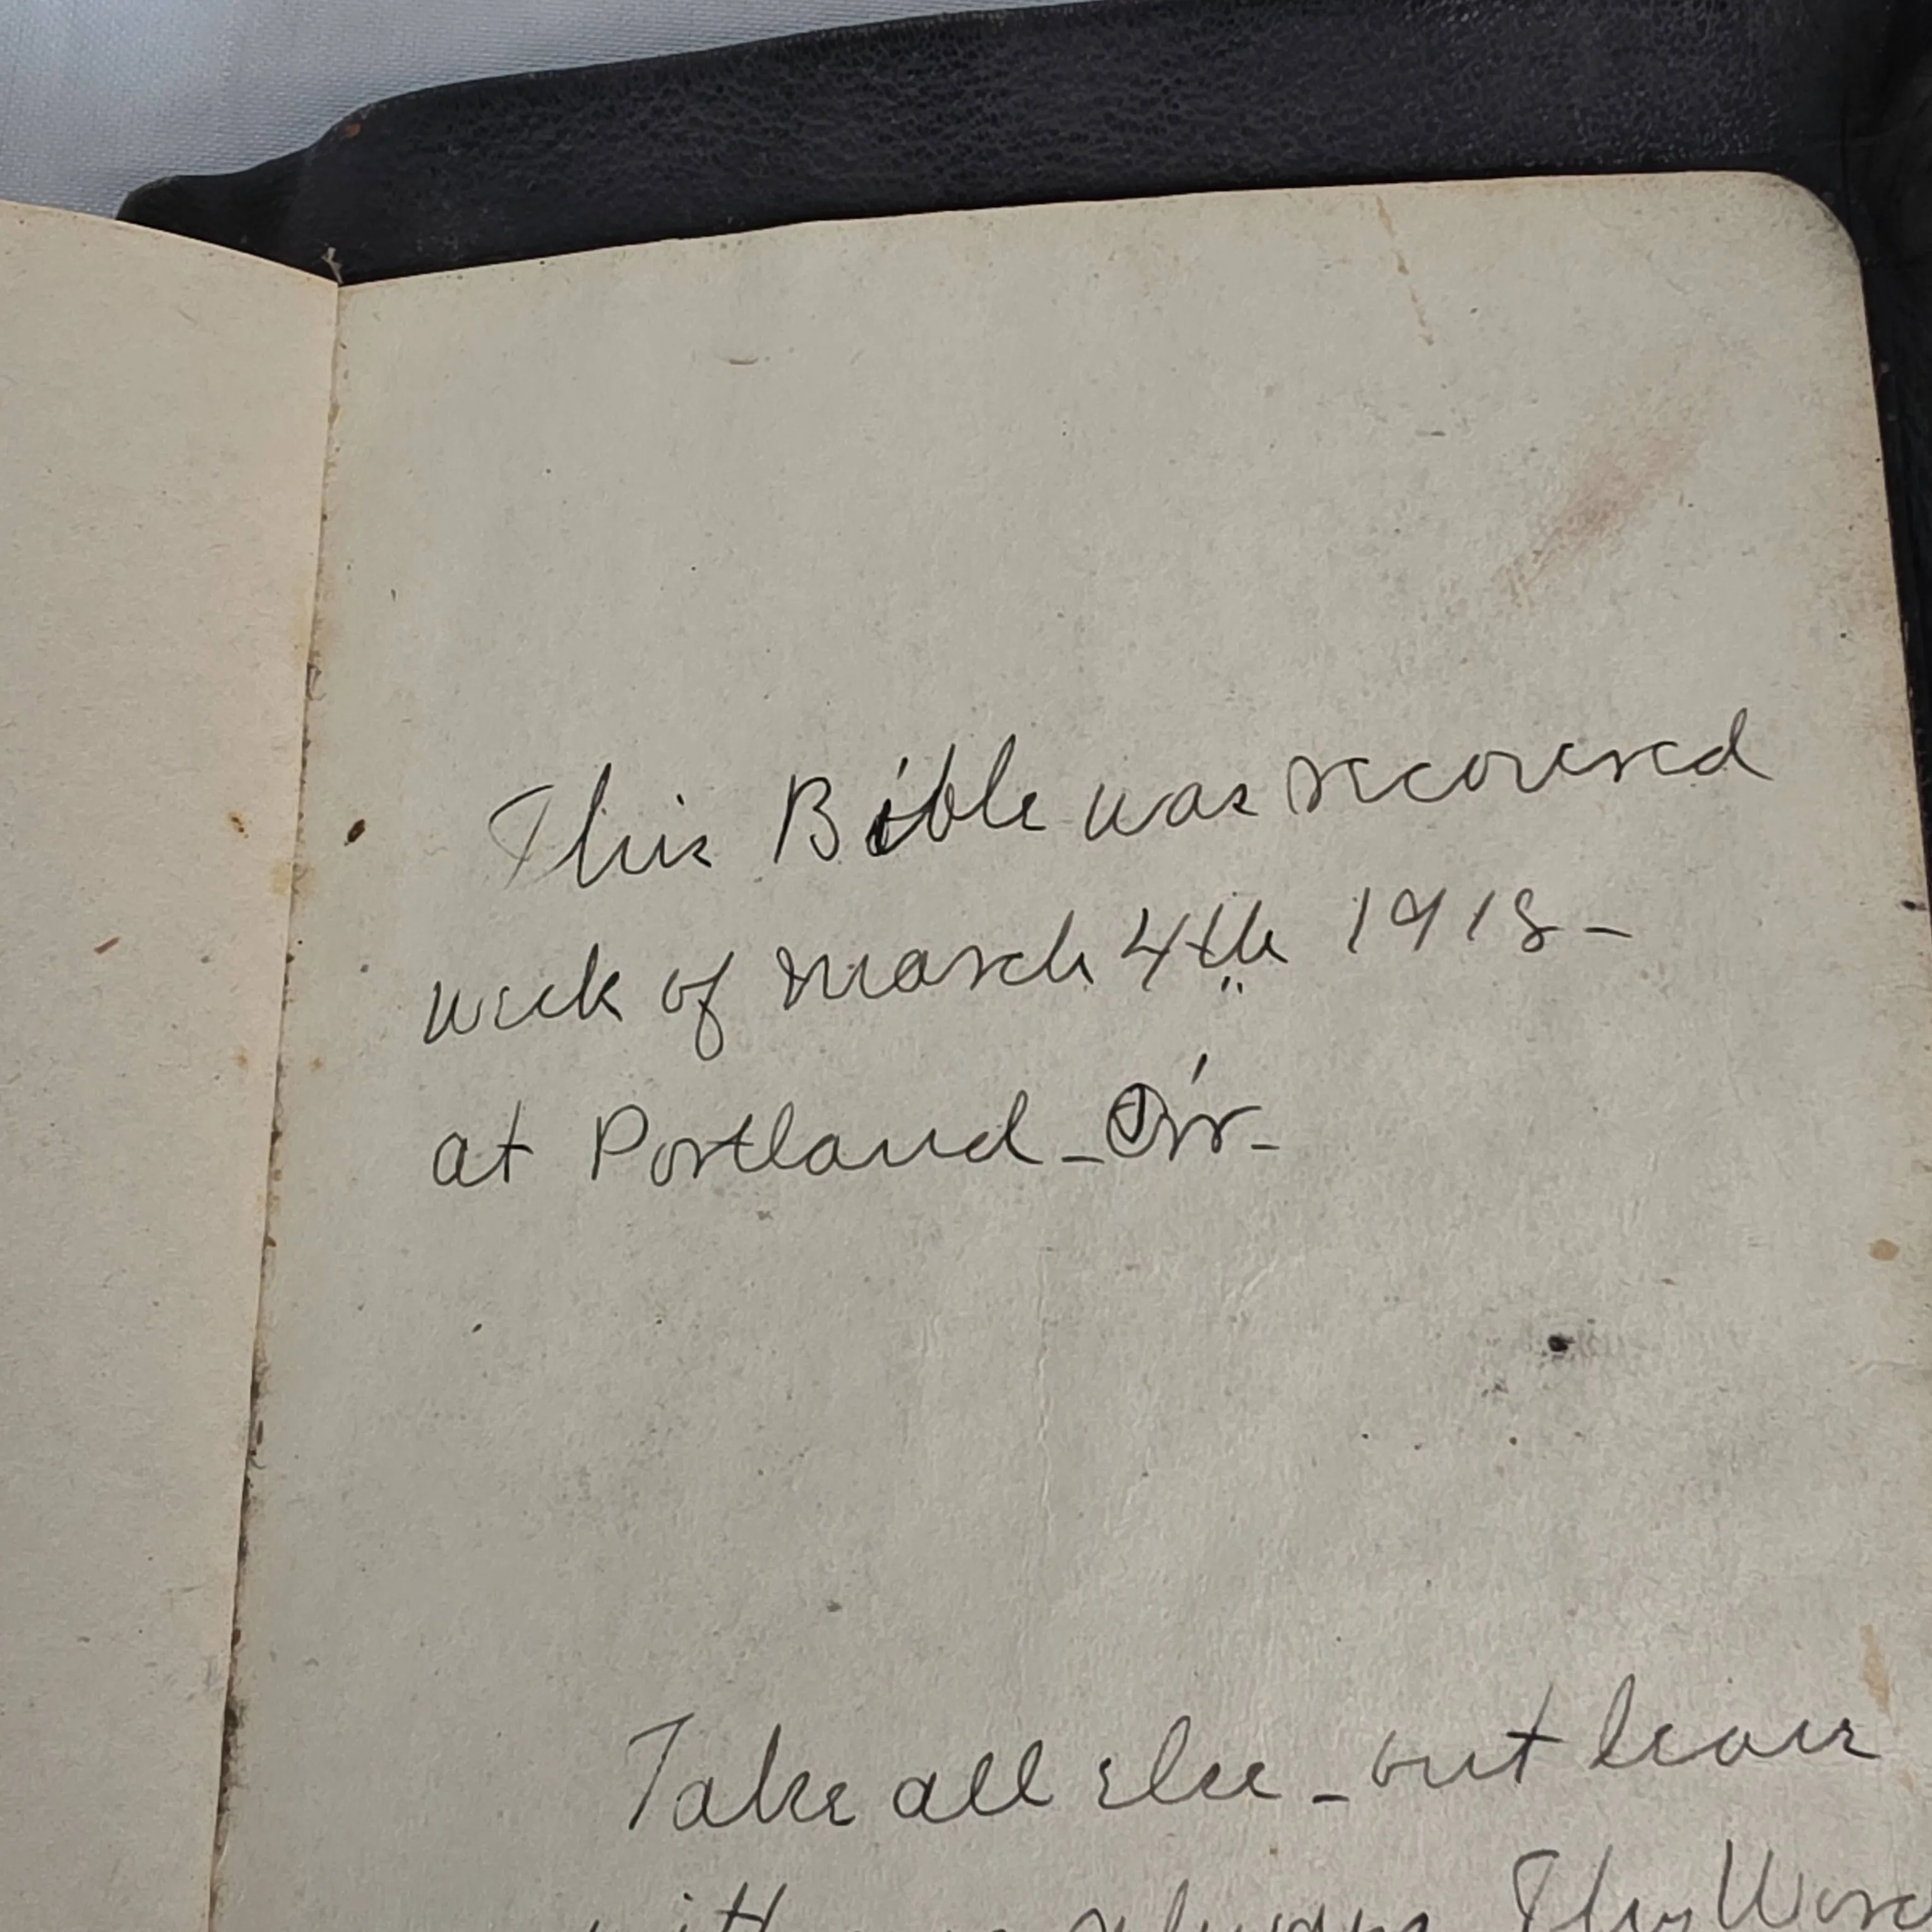 This Bible was recovered
week of March 4th 1918-
at Portland - Or-
Take all else - but leave
with me always Thy Word